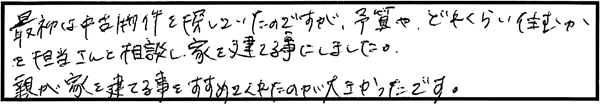 最初は中古物件を探していたのですが、予算や、どれくらい住むか
を担当さんと相談し、家を建てる事にしました。
親が家を建てる事をすすめてくれたのが大きかったです。